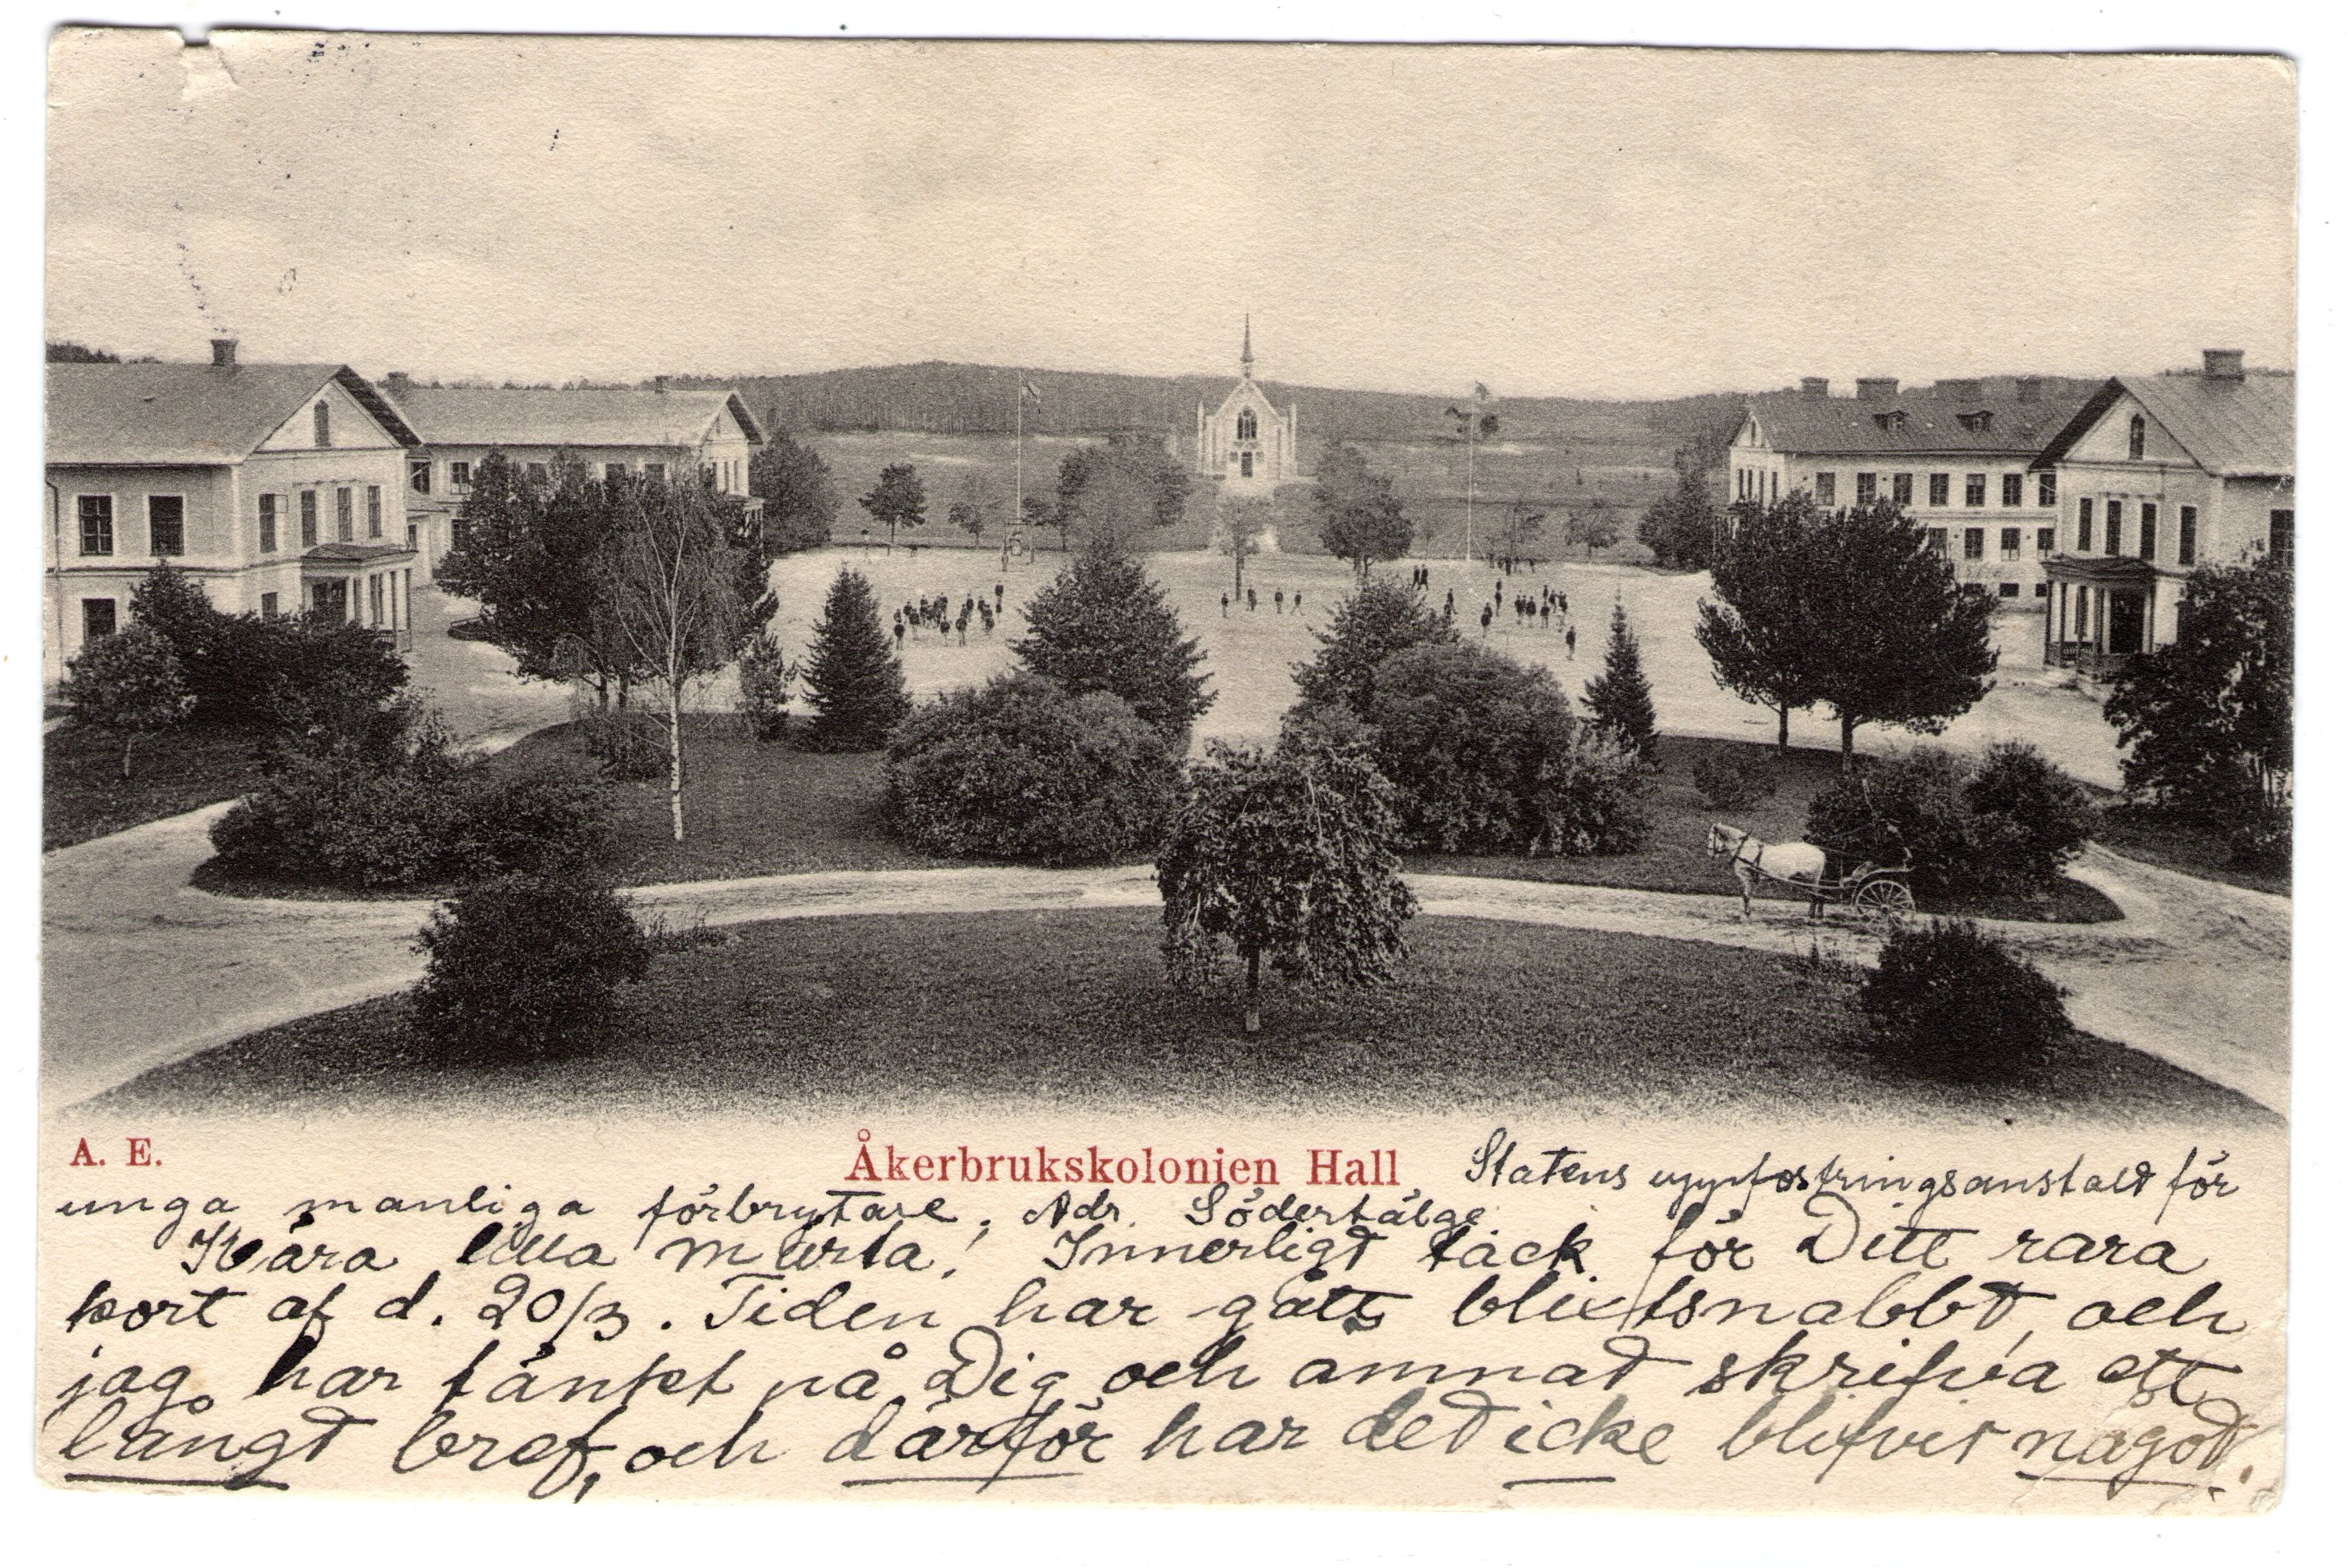 A. E.
Åkerbrukskolonien Hall Statens uppfostringsanstalt för
unga manliga förbrytare. Adr. Södertälge.
Kära lilla Märta! Innerligt tack för Ditt rara
kort af d. 20/3. Tiden har gått blixtsnabbt, och
jag har tänkt på Dig och ämnat skrifva ett
långt bref, och därför har det icke blifvit något.